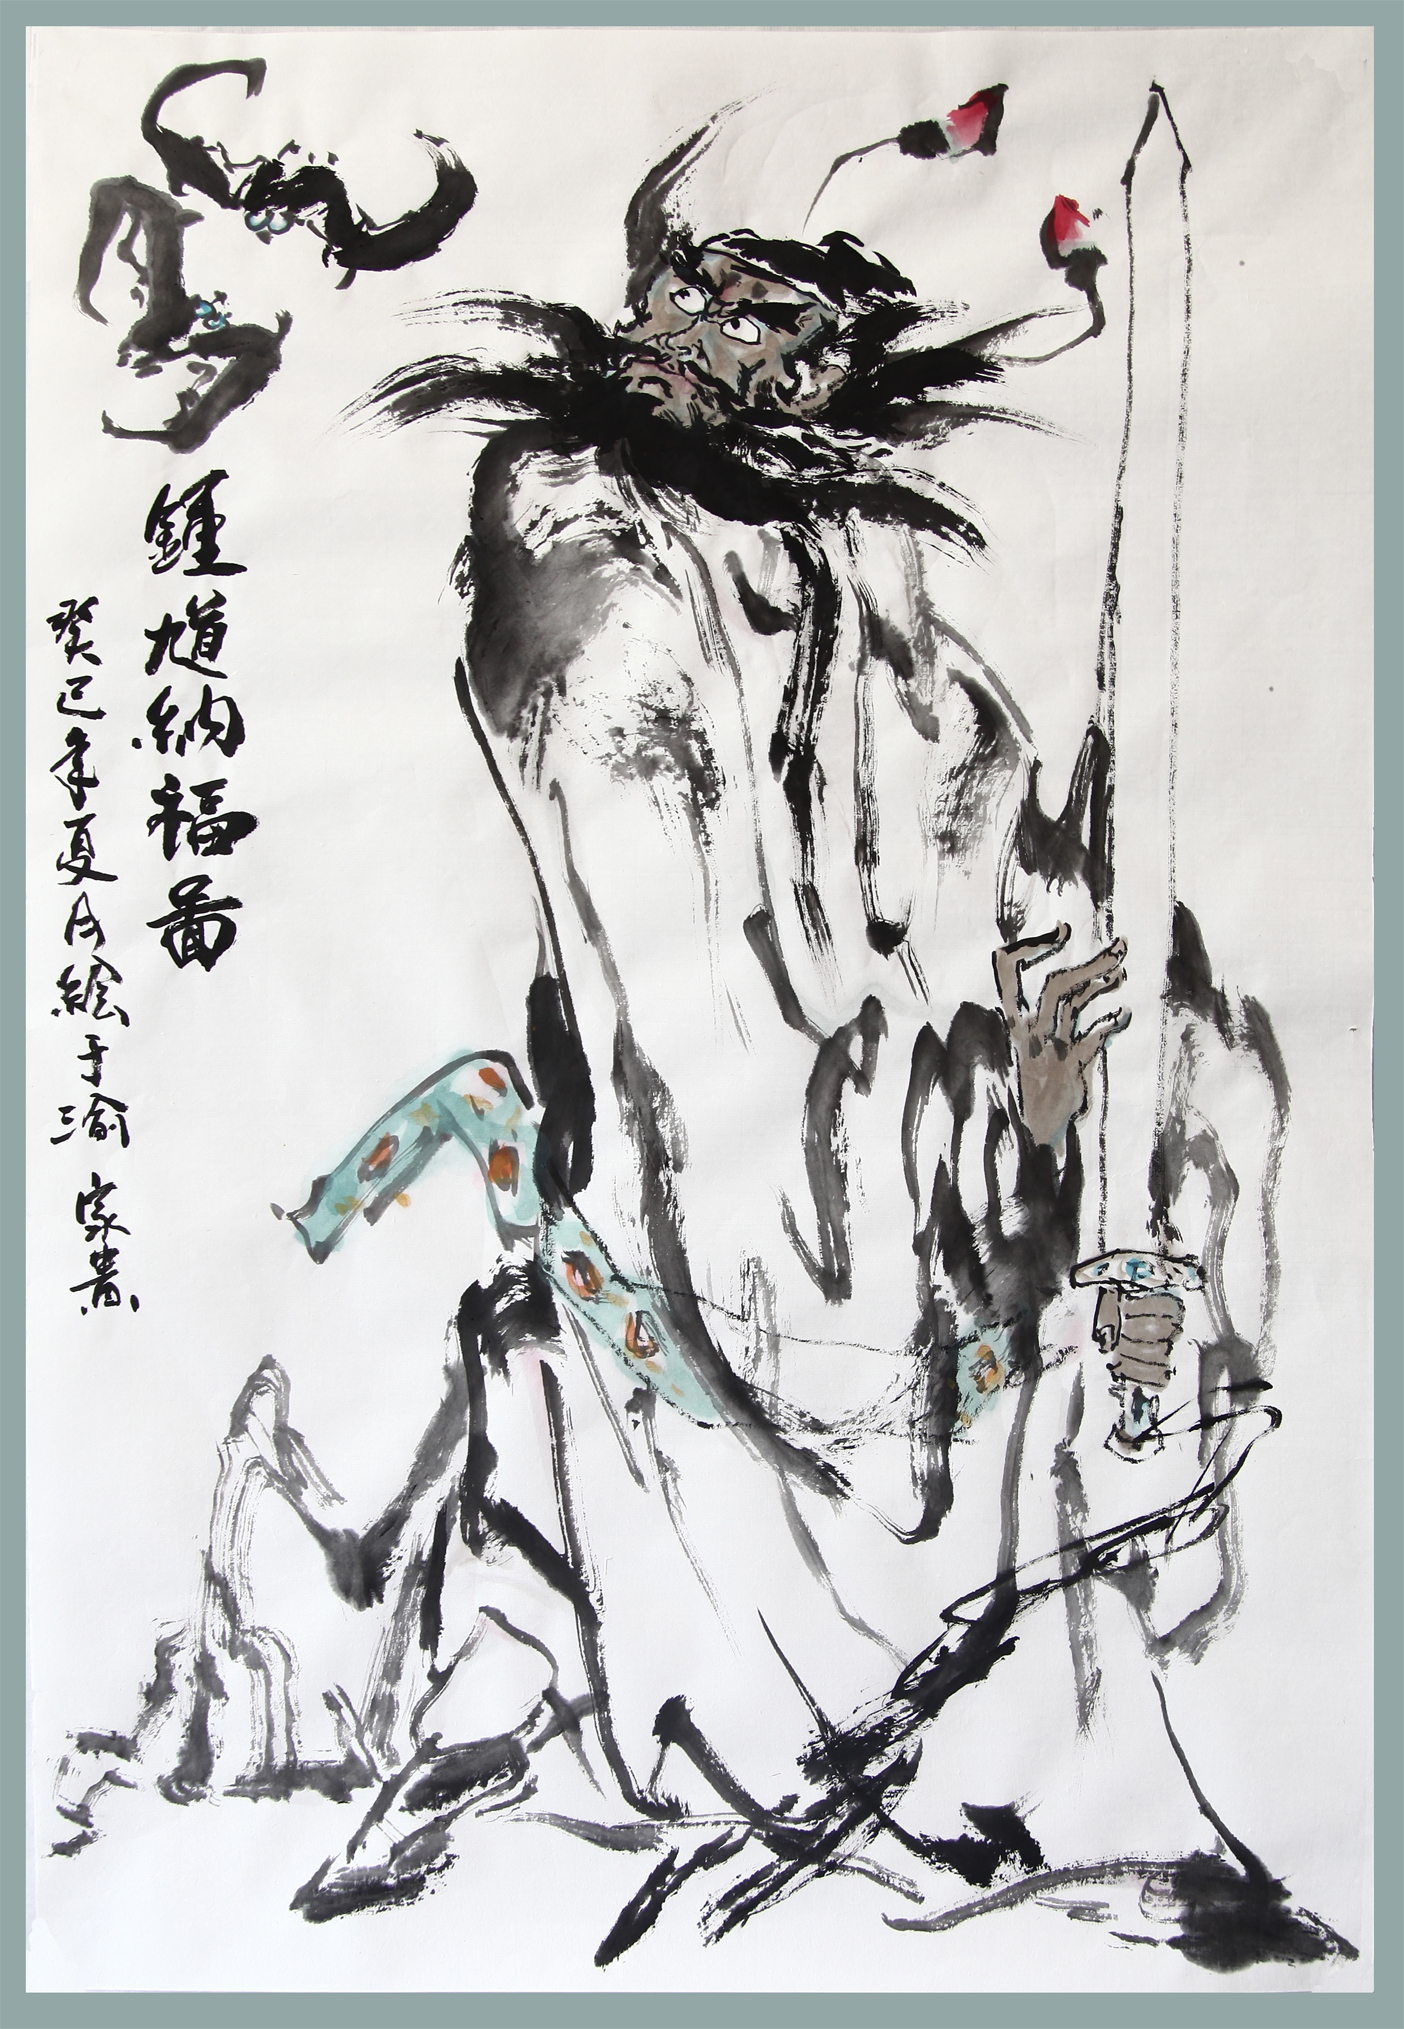 鍾馗納福圖
癸巳年夏月繪于渝 家貴